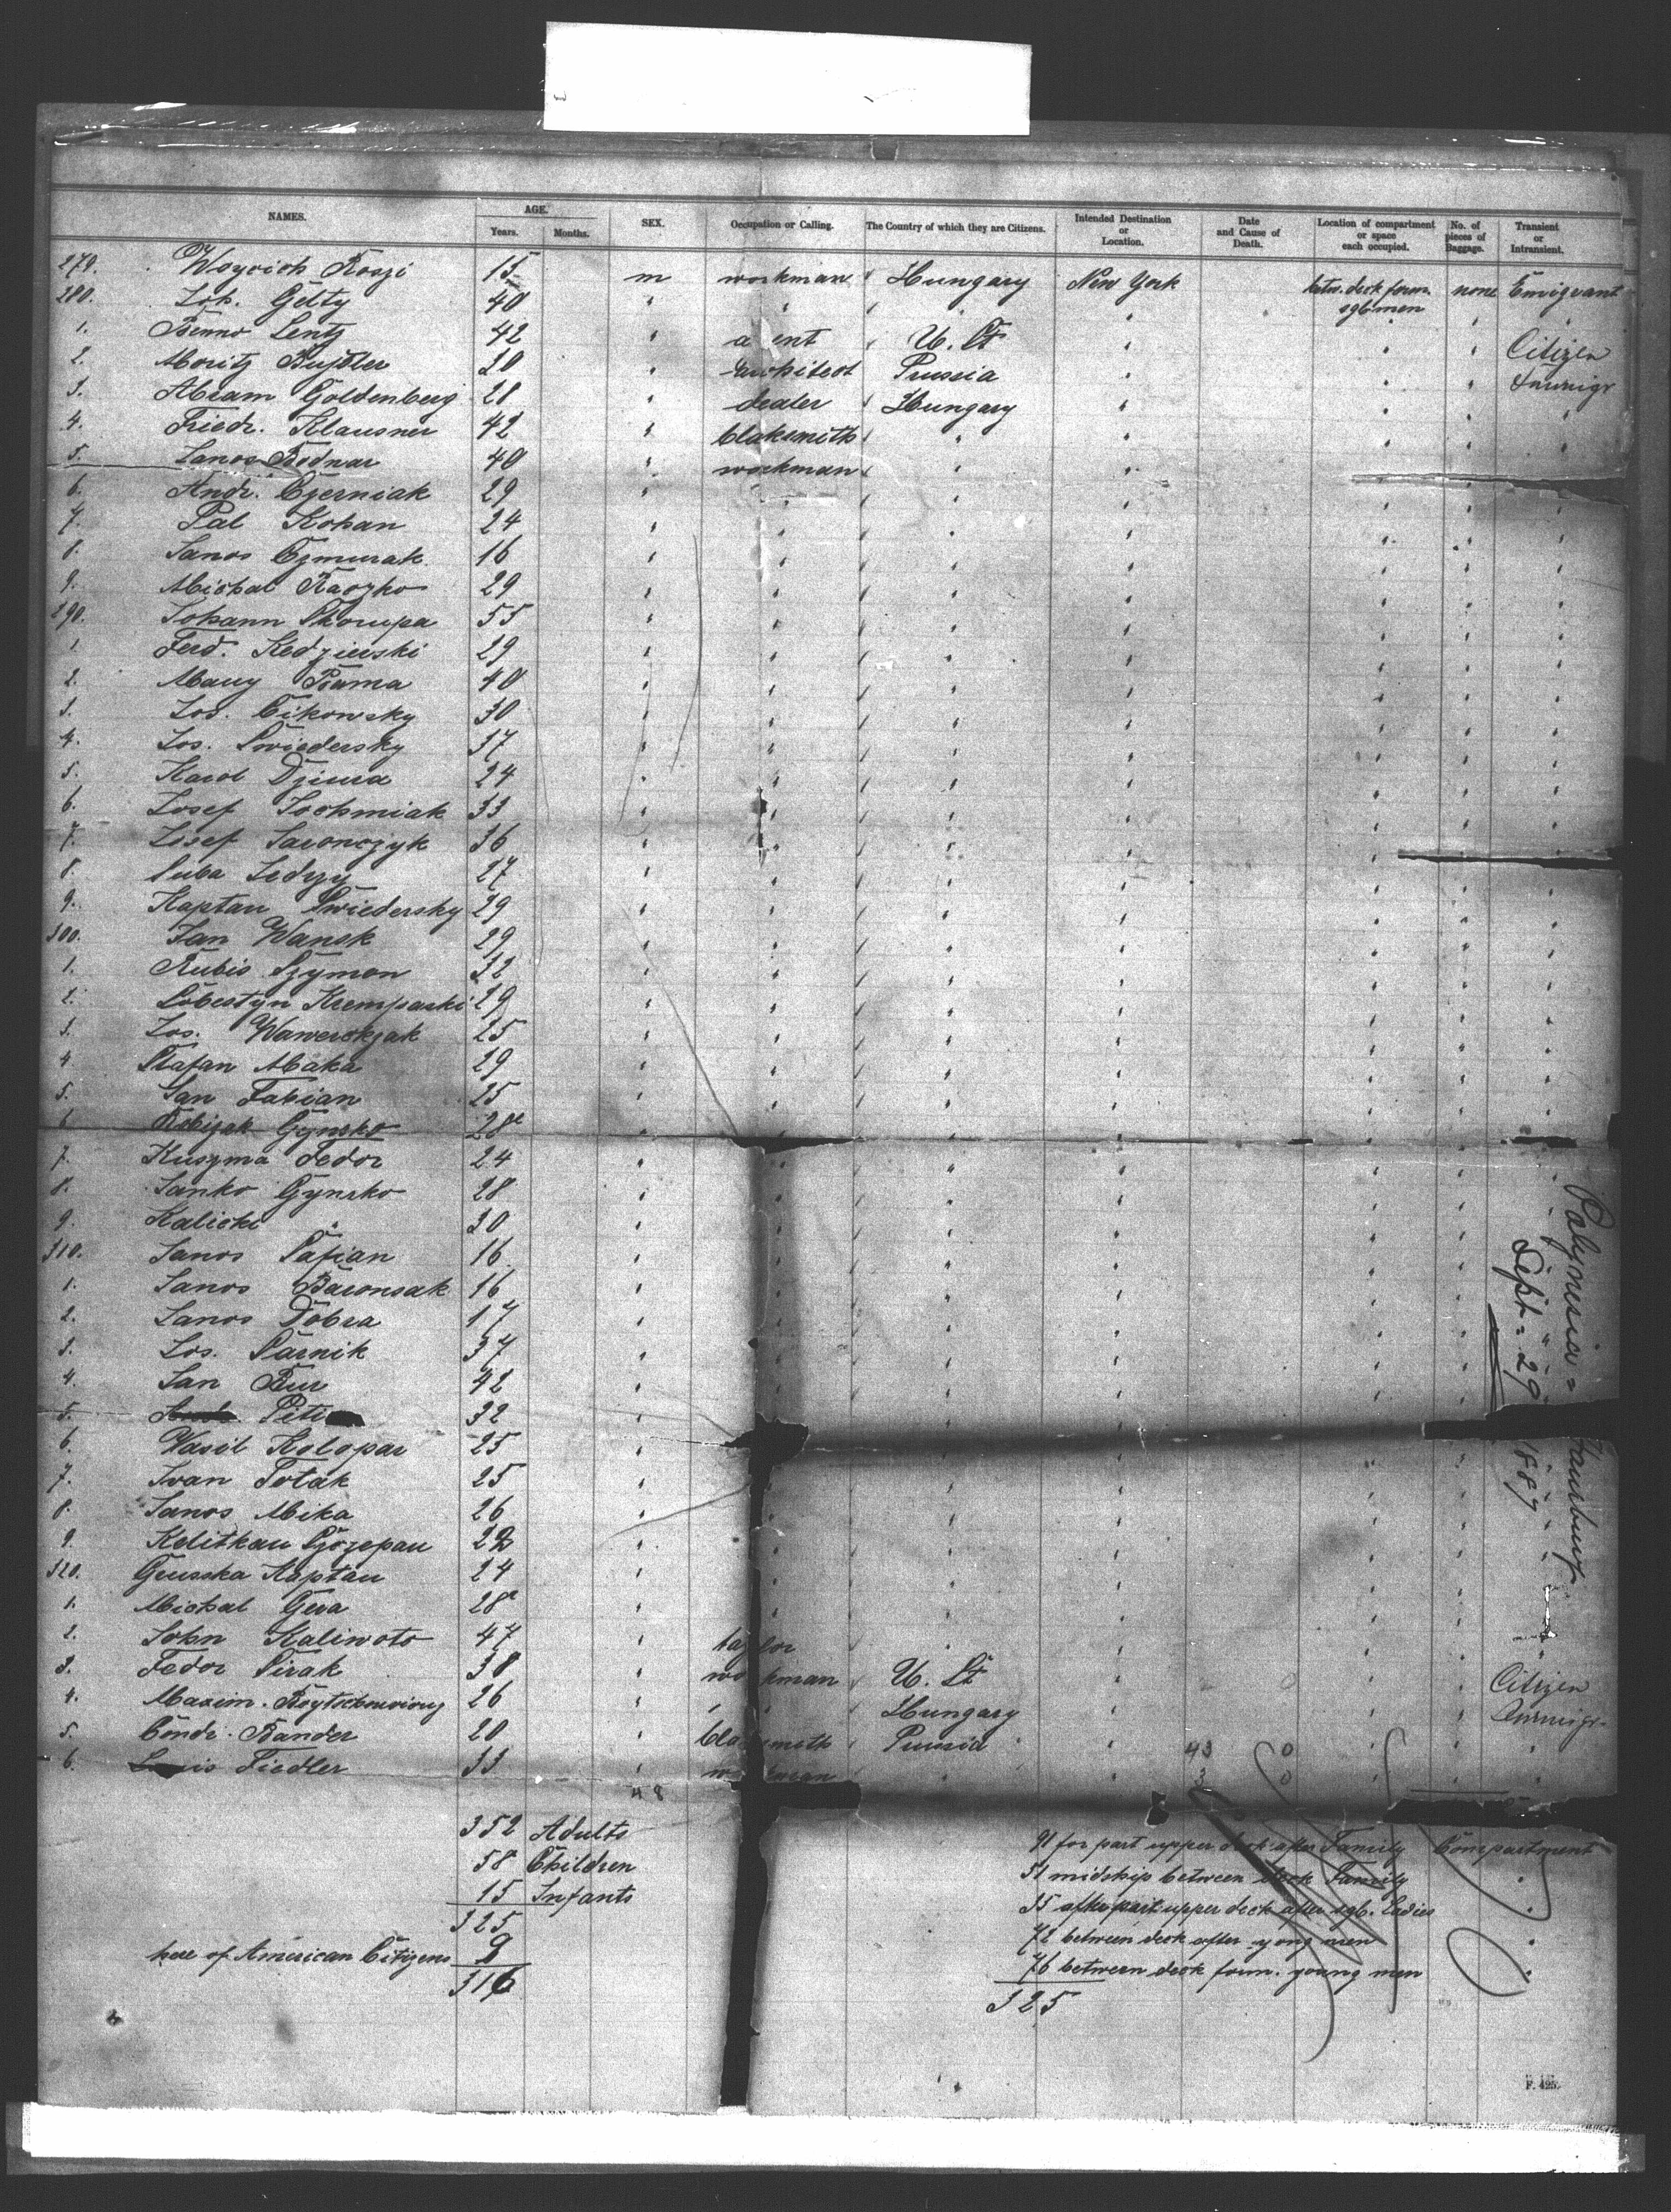 NAMES. AGE. Years. Months. SEX. Occupation or Calling. The Country of which they are Citizens. Intended Destination or Location. Date and Cause of Death. Location of compartment or space each occupied. No. of pieces of Baggage. Transient or Intransient.
279. Woycich Roszi 15 m workman " Hungary New York betw. deck forw. sgl men none Emigrant
280. Joh. Gelty 40 " " " " " " "
1. Benno Lentz 42 " a ent " U. St " " " Citizen
2. Moritz 20 " architect Prussia " " "
3. Abram Goldenberg 28 " dealer " Hungary " " " "
4. Friedr. Klausner 42 " blaksmith " " " " " "
5. Janos Bodnar 40 " workman " " " " " "
6. Andr. Czerniak 29 " " " " " " " "
7. Pal Kohan 24 " " " " " " " "
8. Janos Czmurak 16 " " " " " " " "
9. Michal Raczko 29 " " " " " " " "
290. Johann Skorupa 55 " " " " " " " "
1. Ferd. Kedzierski 29 " " " " " " " "
2. Bama 40 " " " " " " " "
3. Jos. Cikowsky 30 " " " " " " " "
4. Jos. Swiedersky 37 " " " " " " " "
5. Karol Dziura 24 " " " " " " " "
6. Josef Jochmiak 33 " " " " " " " "
7. Josef Saronczyk 36 " " " " " " " "
8. Suba Jedrzy 27 " " " " " " " "
9. Kaptan Swiedersky 29 " " " " " " " "
300. Jan Wansk 29 " " " " " " " "
1. Rubis Szymon 32 " " " " " " " "
2. Sobestyn Kremparski 29 " " " " " " " "
3. Jos. 25 " " " " " " " "
4. Stafan Maka 29 " " " " " " " "
5. Jan Fabian 25 " " " " " " " "
6. Gynsko 28 " " " " " " " "
7. Kuszma Fedor 24 " " " " " " " "
8. Janko Gynsko 28 " " " " " " " "
9. Kalicki " 30 " " " " " " " "
310. Janos Safian 16 " " " " " " " "
1. Janos Baronsak 16 " " " " " " " "
2. Janos Dobra 17 " " " " " " " "
3. Jos. Parnik 37 " " " " " " " "
4. Jan Bur 42 " " " " " " " "
5. 32 " " " " " " " "
6. Wasil Kolopar 25 " " " " " " " "
7. Ivan Potak 25 " " " " " " " "
8. Janos Mika 26 " " " " " " " "
9. " " " " " " " "
320. Kaptan 24 " " " " " " " "
1. Michal Gera 28 " " " " " " " "
2. John Kaliwoto 47 " taylor " " " " " "
3. Fedor Sirak 38 " workman U. St " " Citizen
4. Maxim. 26 " " " Hungary " "
5. Condr. Bander 20 " bla smith " Prussia " " " "
6. Fiedler 33 " workman " " " " "
43 0
3 0
48
Polynesia = Hamburg
Sept = 29 1887
352 Adults
58 Children
15 Infants
325
here of American Citizens 9
316
91 for part upper deck after Family Compartment
51 midship between deck Family "
35 after part upper deck after sgl. Ladies "
72 between deck after yong men "
76 between deck forw. young men "
325
F. 425.